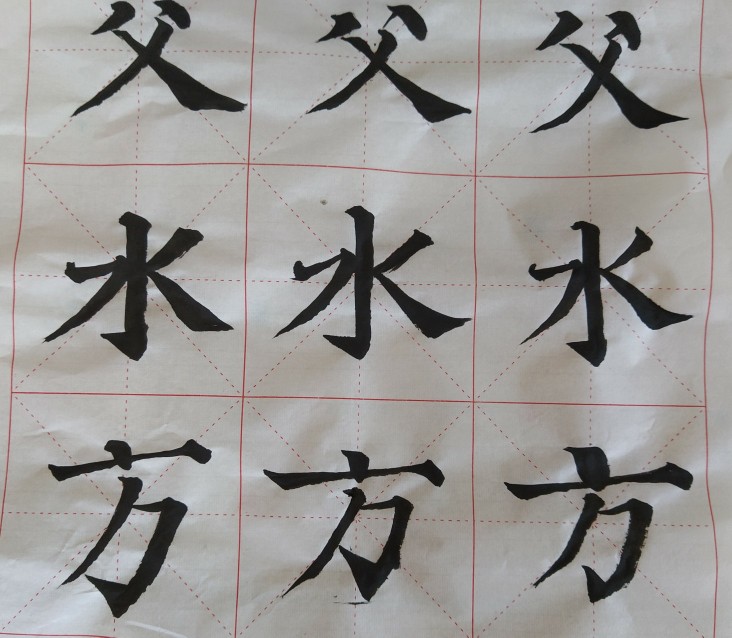 父父父
水水水
方方方